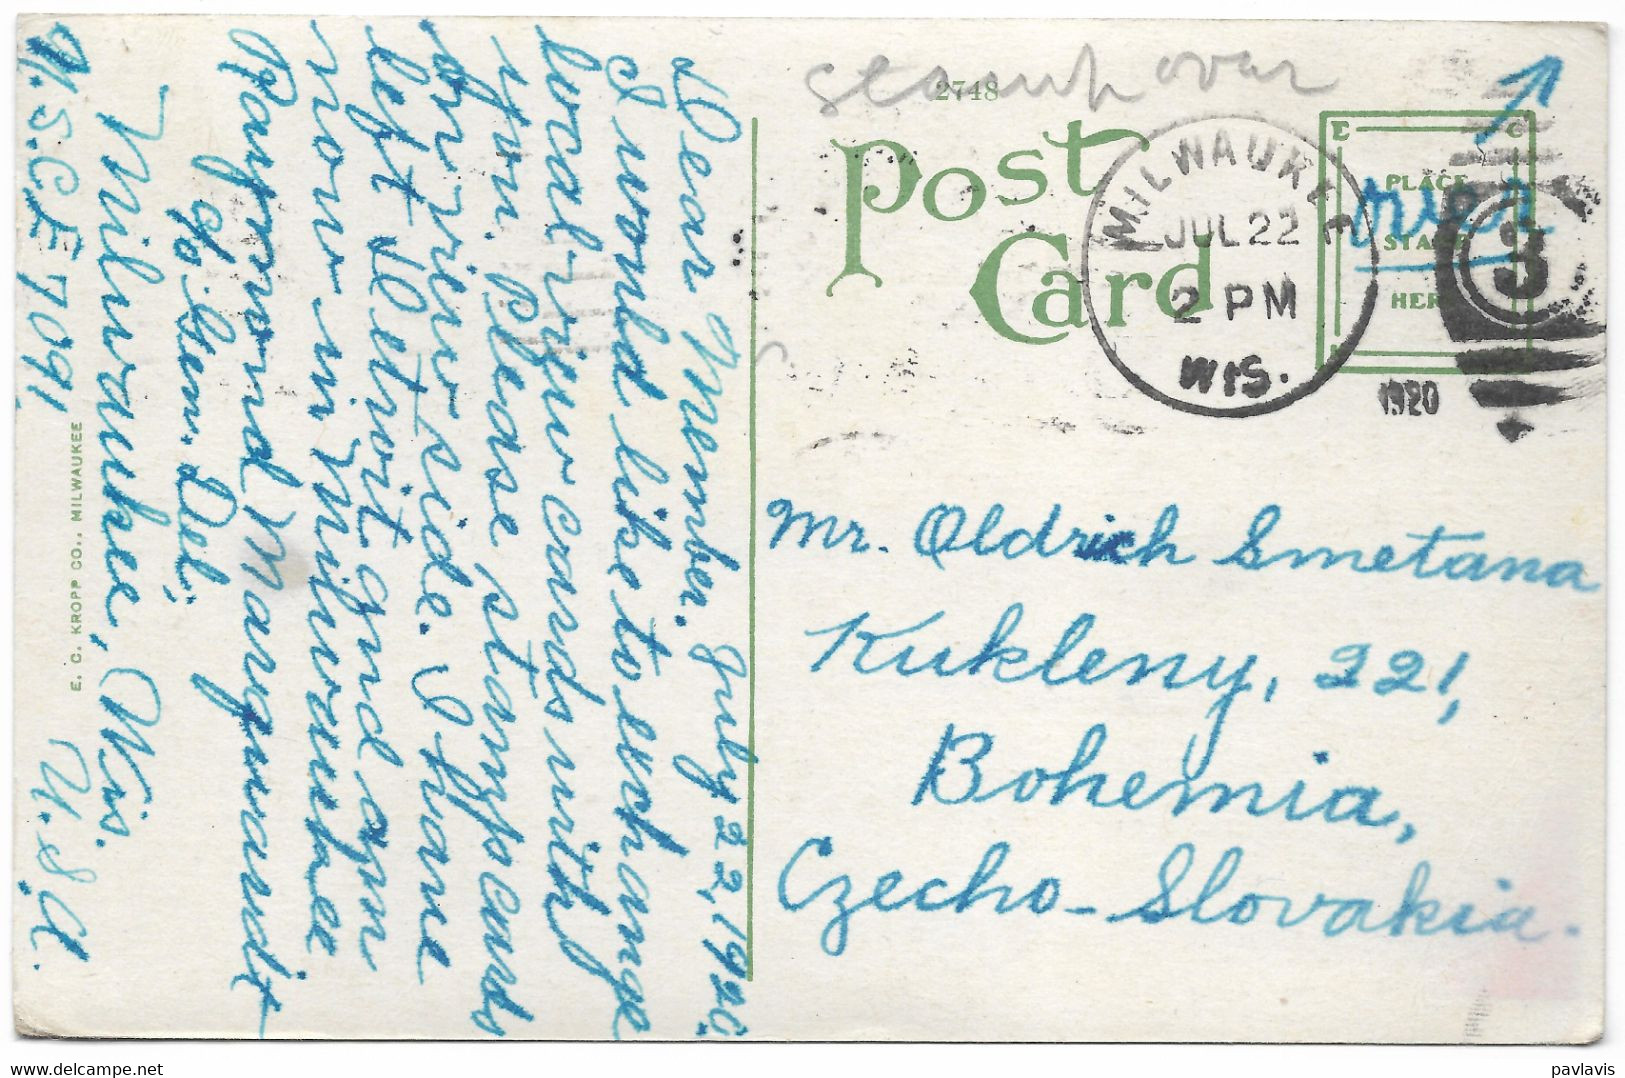 stamp over
2748
Post
Card
MILWAUKEE
JUL 22
2 PM
WIS.
1920
3
PLACE
STAMP
HERE
over
Mr. Oldrich Smetana
Kukleny, 221,
Bohemia,
Czecho-Slovakia.
July 22, 1920.
Dear Member.
I would like to exchange
local view cards with
you. Please stamp cards
on view side. I have
left Detroit and am
now in Milwaukee
Raymond Marquardt
% Gen. Del.
Milwaukee, Wis.
U.S.A.
E. C. KROPP CO., MILWAUKEE
7091
www.delcampe.net
pavlavis